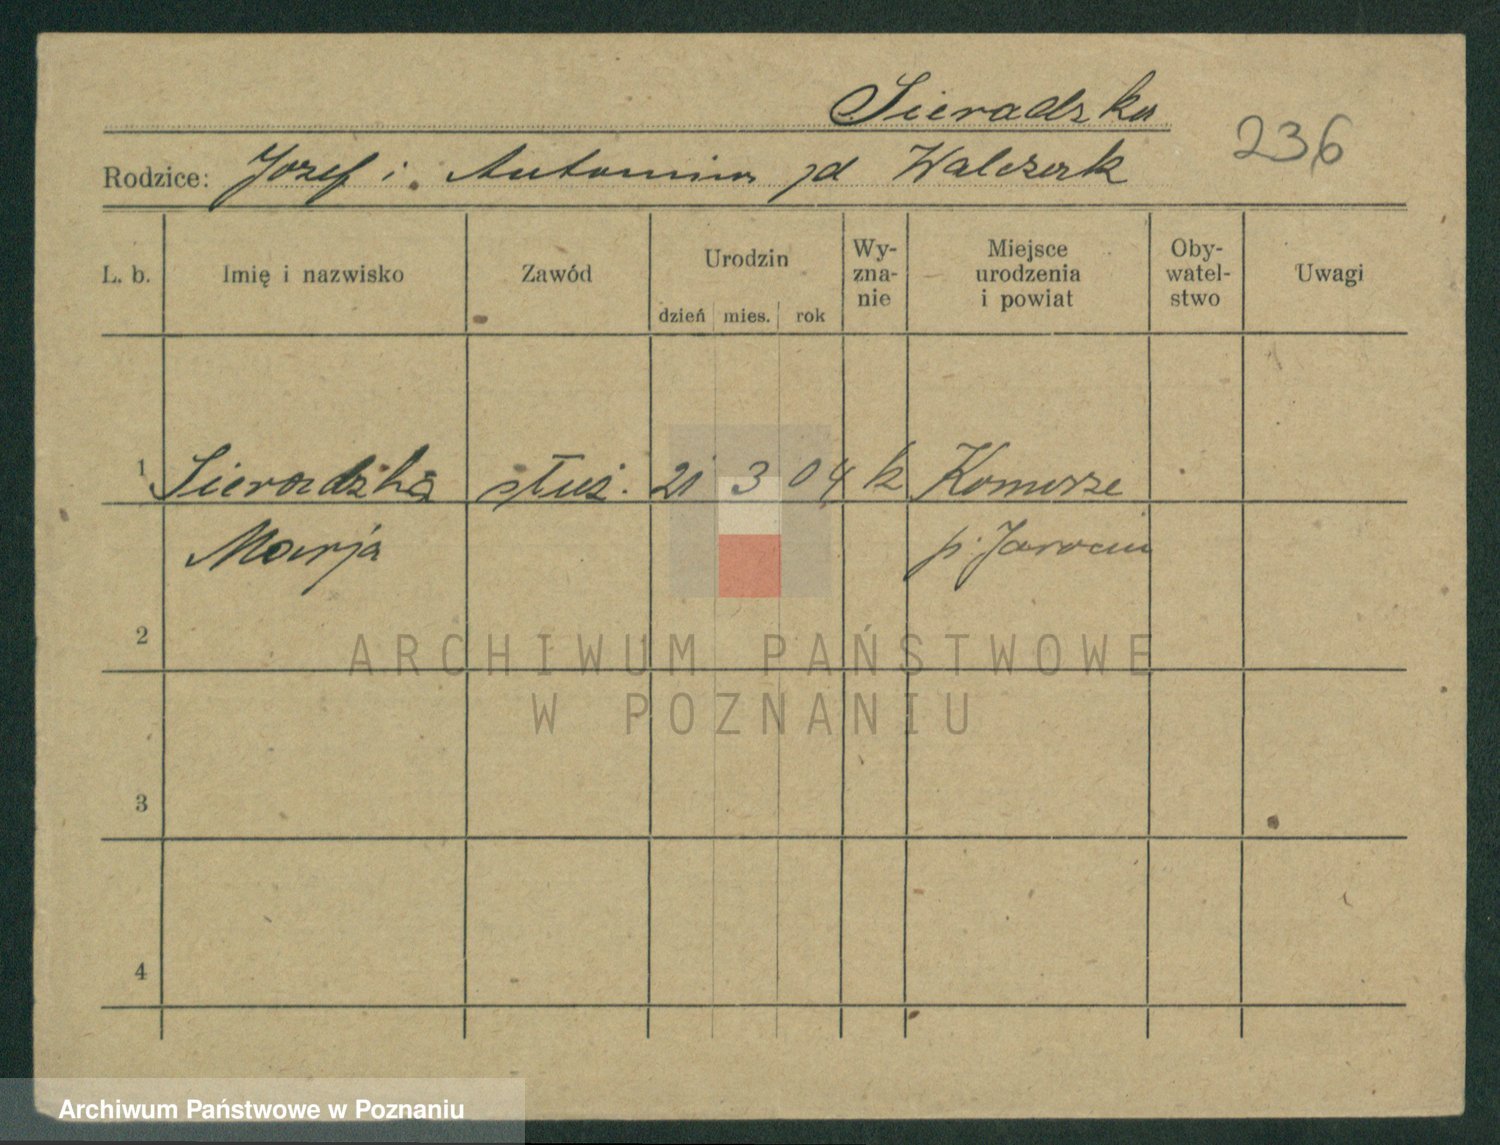 Sieradzka
236
Rodzice: Józef i Antonina zd Walczak
L. b. Imię i nazwisko Zawód Urodzin dzień mies. rok Wy-zna-nie Miejsce urodzenia i powiat Oby-watel-stwo Uwagi
1 Sieradzka służ. 21 3 04 k Komorze
Marja p. Jarocin
2
3
4
ARCHIWUM PAŃSTWOWE
W POZNANIU
Archiwum Państwowe w Poznaniu